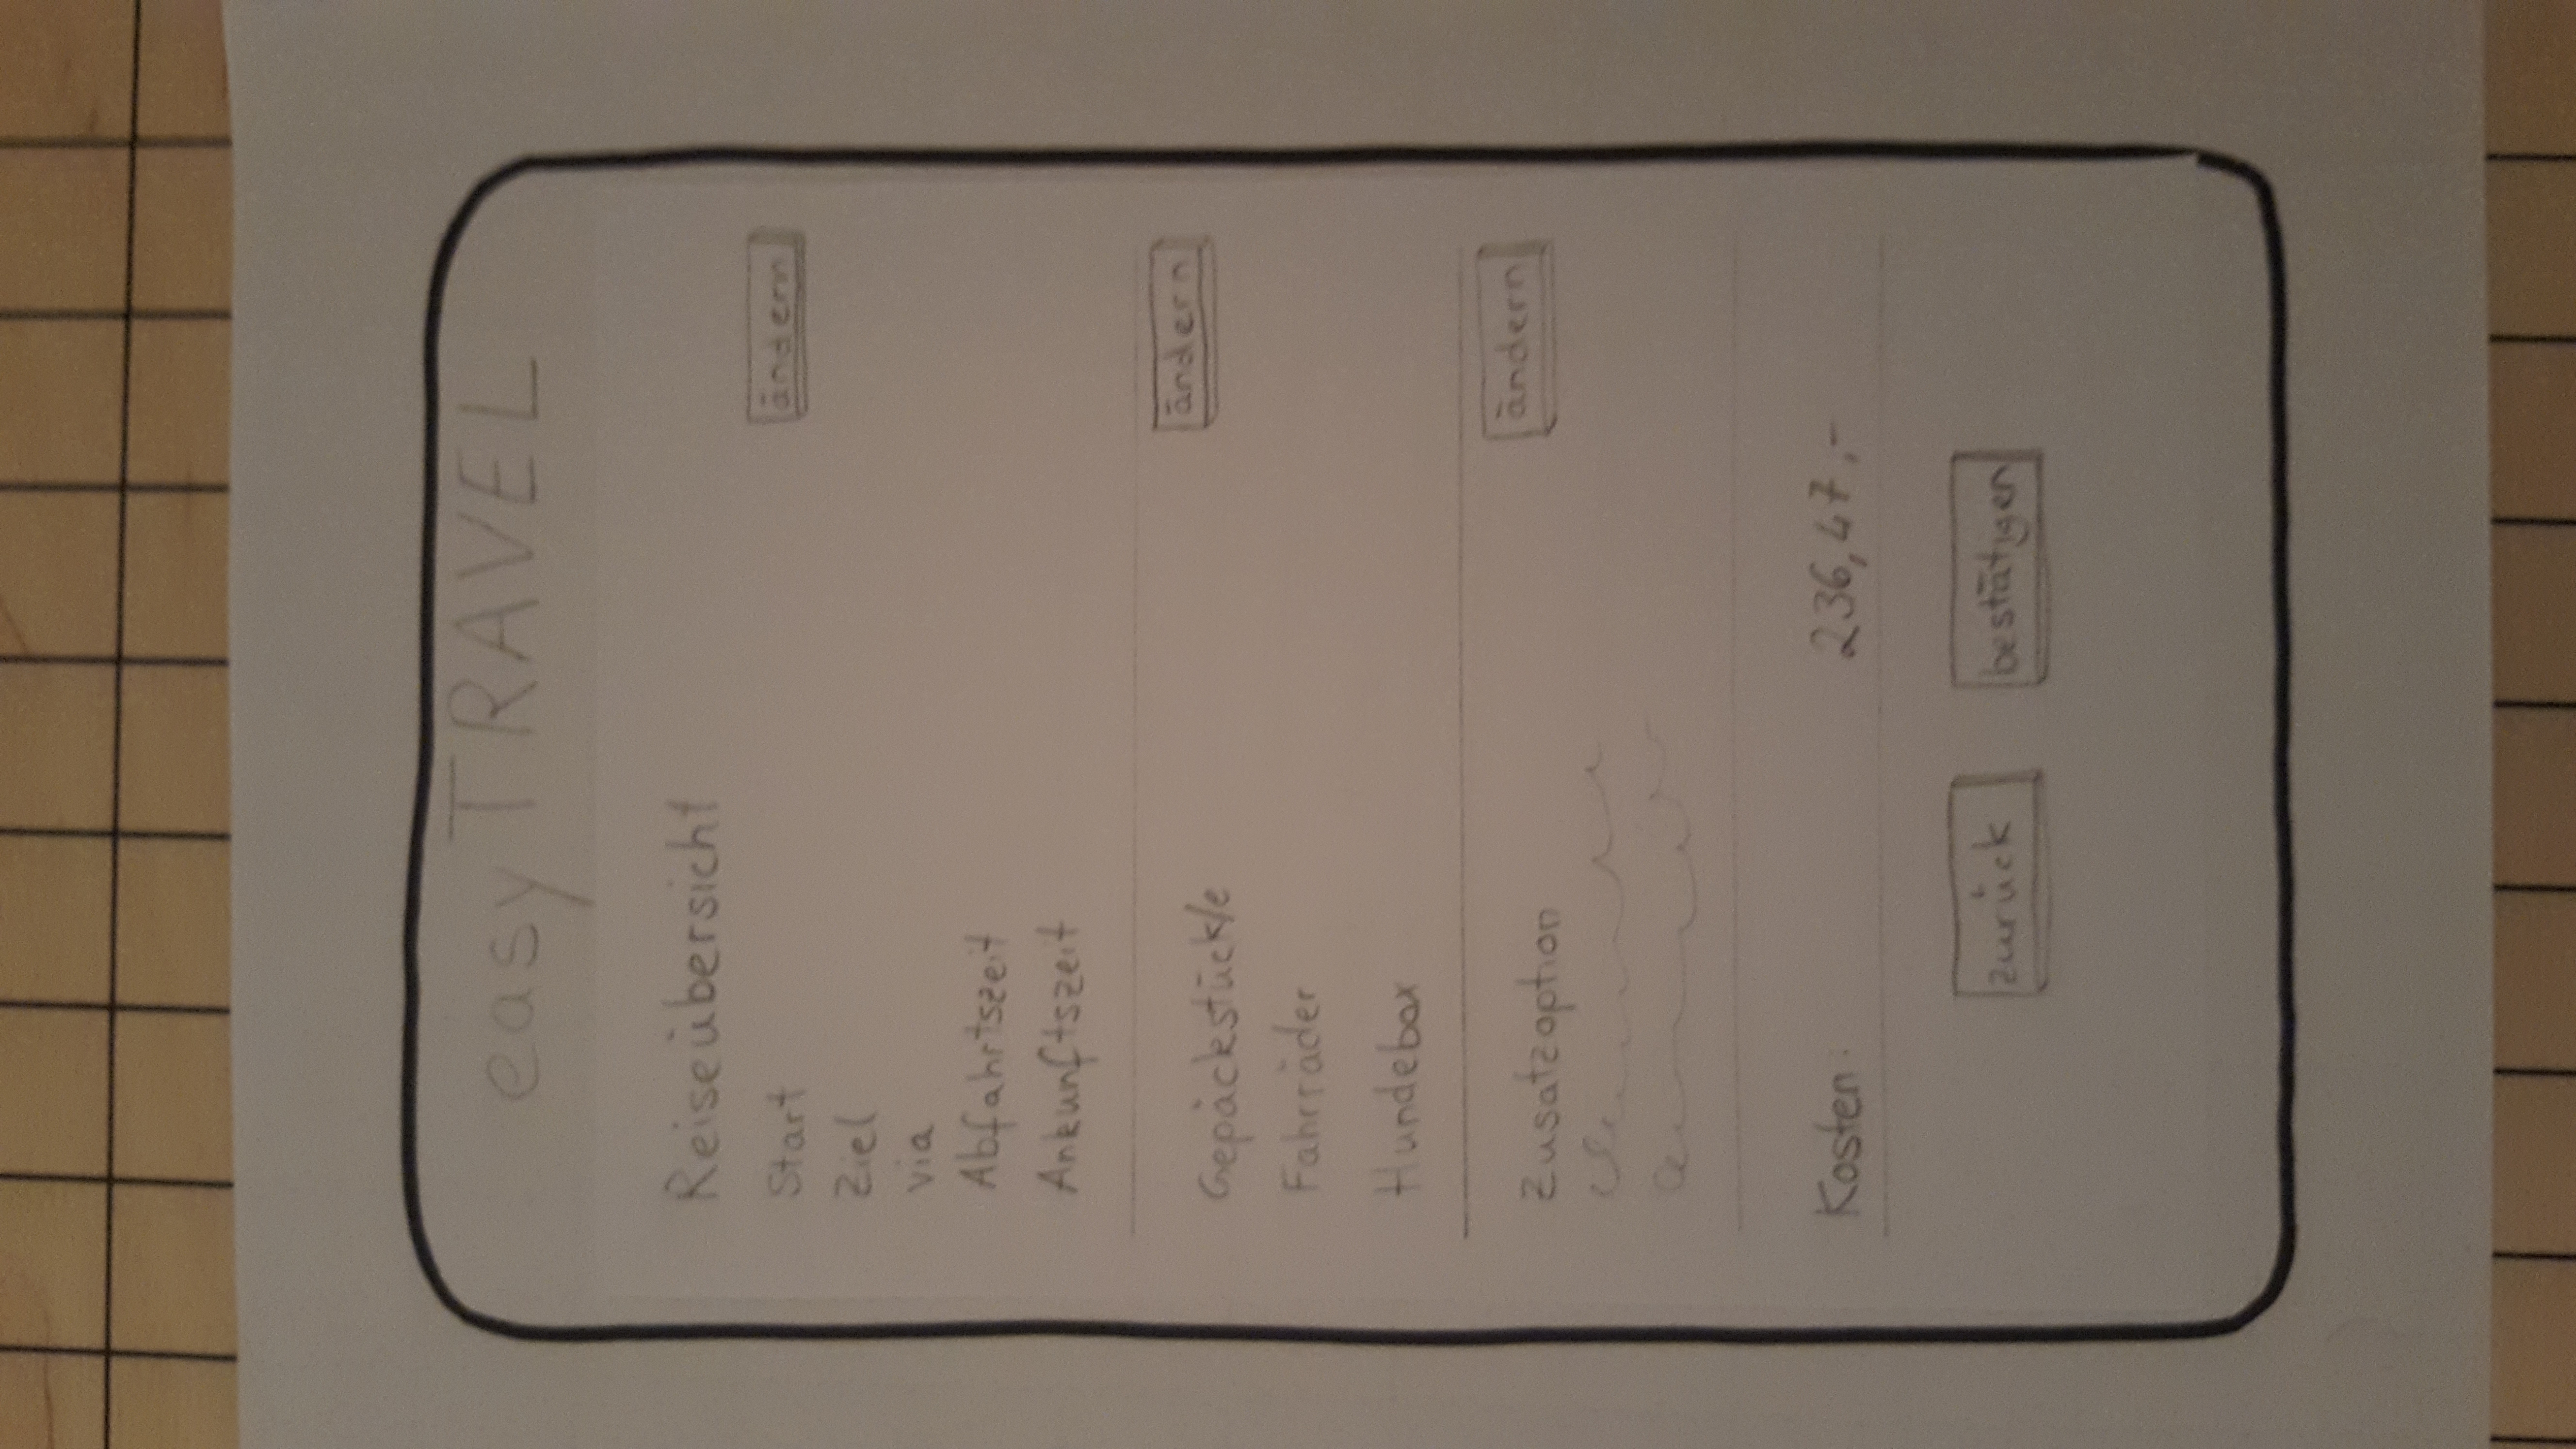 easyTRAVEL
Reiseübersicht
Start ändern
Ziel
via
Abfahrtszeit
Ankunftszeit
Gepäckstück/e ändern
Fahrräder
Hundebox
Zusatzoption ändern
Kosten: 236,47,-
zurück bestätigen